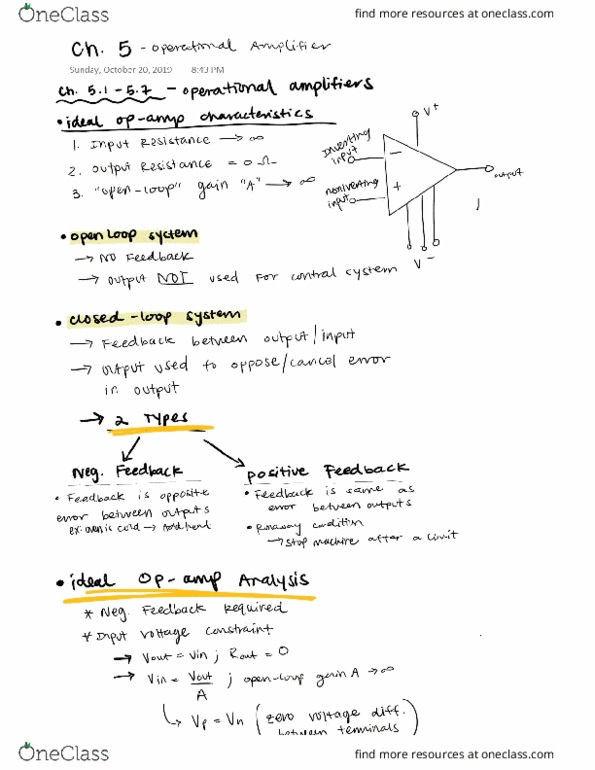 OneClass
find more resources at oneclass.com
Ch. 5 - operational Amplifier
Sunday, October 20, 2019 8:43 PM
Ch. 5.1 - 5.7 - operational amplifiers
• ideal op-amp characteristics
1. Input Resistance → ∞
2. Output Resistance = 0 Ω
3. "open-loop" gain "A" → ∞
V+
Inverting
input
−
noninverting
input
+
output
V−
• open loop system
→ No Feedback
→ output NOT used for control system
• closed-loop system
→ Feedback between output/input
→ output used to oppose/cancel error
in output
→ 2 Types
Neg. Feedback
• Feedback is opposite
error between outputs
ex: oven is cold → add heat
positive Feedback
• Feedback is same as
error between outputs
• Runaway condition
→ stop machine after a limit
• ideal Op-amp Analysis
* Neg. Feedback Required
* Input voltage constraint
→ Vout = Vin ; Rout = 0
→ Vin = Vout / A ; open-loop gain A → ∞
↳ Vp = Vn (zero voltage diff.
between terminals)
OneClass
find more resources at oneclass.com